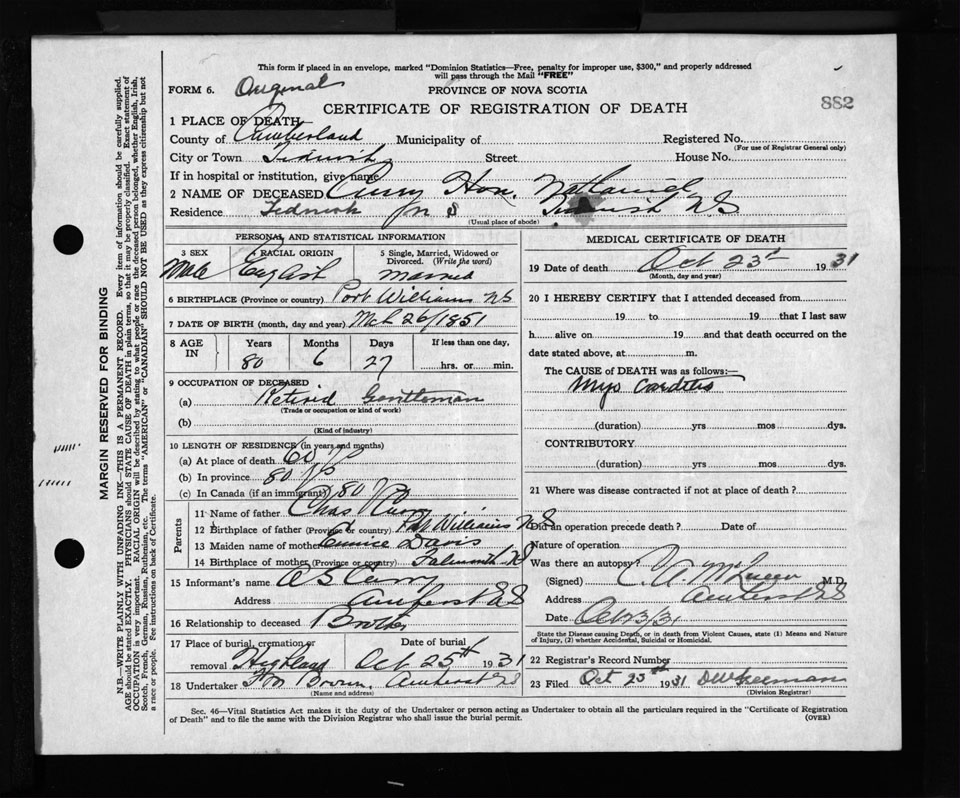 This form if placed in an envelope, marked "Dominion Statistics—Free, penalty for improper use, $300," and properly addressed
will pass through the Mail "FREE"
FORM 6. Original PROVINCE OF NOVA SCOTIA
CERTIFICATE OF REGISTRATION OF DEATH 882
1 PLACE OF DEATH
County of Cumberland Municipality of Registered No.
(For use of Registrar General only)
City or Town Tidnish Street House No.
If in hospital or institution, give name
2 NAME OF DECEASED Curry Hon. Nathaniel
Residence Tidnish N S Tidnish N.S
(Usual place of abode)
PERSONAL AND STATISTICAL INFORMATION
3 SEX 4 RACIAL ORIGIN 5 Single, Married, Widowed or Divorced. (Write the word)
Male English Married
6 BIRTHPLACE (Province or country) Port Williams NS
7 DATE OF BIRTH (month, day and year) Mch 26/1851
8 AGE IN Years Months Days If less than one day,
80 6 27 hrs. or min.
9 OCCUPATION OF DECEASED
(a) Retired Gentleman
(Trade or occupation or kind of work)
(b)
(Kind of industry)
10 LENGTH OF RESIDENCE (in years and months)
(a) At place of death 60
(b) In province 80
(c) In Canada (if an immigrant) 80
Parents
11 Name of father Chas Curry
12 Birthplace of father (Province or country) Pt Williams N S
13 Maiden name of mother Eunice Davis
14 Birthplace of mother (Province or country) Falmouth NS
15 Informant's name Curry
Address Amherst NS
16 Relationship to deceased Brother
17 Place of burial, cremation or removal Highland Date of burial Oct 25th 1931
18 Undertaker Brown, Amherst NS
(Name and address)
MEDICAL CERTIFICATE OF DEATH
19 Date of death Oct 23rd 1931
(Month, day and year)
20 I HEREBY CERTIFY that I attended deceased from
19 to 19 that I last saw
h alive on 19 and that death occurred on the
date stated above, at m.
The CAUSE of DEATH was as follows:—
Myo Carditis
(duration) yrs mos dys.
CONTRIBUTORY
(duration) yrs mos dys.
21 Where was disease contracted if not at place of death?
Did an operation precede death? Date of
Nature of operation
Was there an autopsy?
(Signed) C. A. McQueen M.D.
Address Amherst NS
Date Oct 23/31
State the Disease causing Death, or in death from Violent Causes, state (1) Means and Nature of Injury, (2) whether Accidental, Suicidal or Homicidal.
22 Registrar's Record Number
23 Filed Oct 1931
(Division Registrar)
Sec. 46—Vital Statistics Act makes it the duty of the Undertaker or person acting as Undertaker to obtain all the particulars required in the "Certificate of Registration
of Death" and to file the same with the Division Registrar who shall issue the burial permit. (OVER)
MARGIN RESERVED FOR BINDING
N.B.—WRITE PLAINLY WITH UNFADING INK—THIS IS A PERMANENT RECORD. Every item of information should be carefully supplied.
AGE should be stated EXACTLY. PHYSICIANS should STATE CAUSE OF DEATH in plain terms, so that it may be properly classified. Exact statement of
OCCUPATION is very important. RACIAL ORIGIN will be described by stating to what people or race the deceased person belonged, whether English, Irish,
Scotch, French, German, Russian, Ruthenian, etc. The terms "AMERICAN" or "CANADIAN" SHOULD NOT BE USED as they express citizenship but not
a race or people. See instructions on back of Certificate.